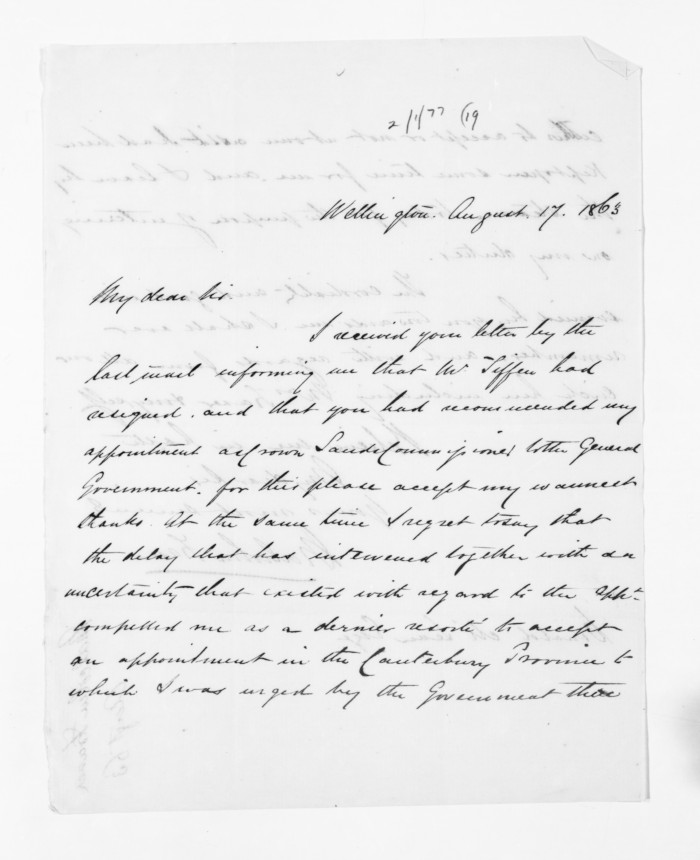 2/1/77 (19
Wellington. August 17. 1863
My dear Sir.
I received your letter by the
last mail informing me that Mr Tiffen had
resigned. and that you had recommended my
appointment as Crown Lands Commissioner to the General
Government. for this please accept my warmest
thanks. At the same time I regret to say that
the delay that has intervened together with an
uncertainty that existed with regard to the appt
compelled me as a dernier resorte to accept
an appointment in the Canterbury Province to
which I was urged by the Government there